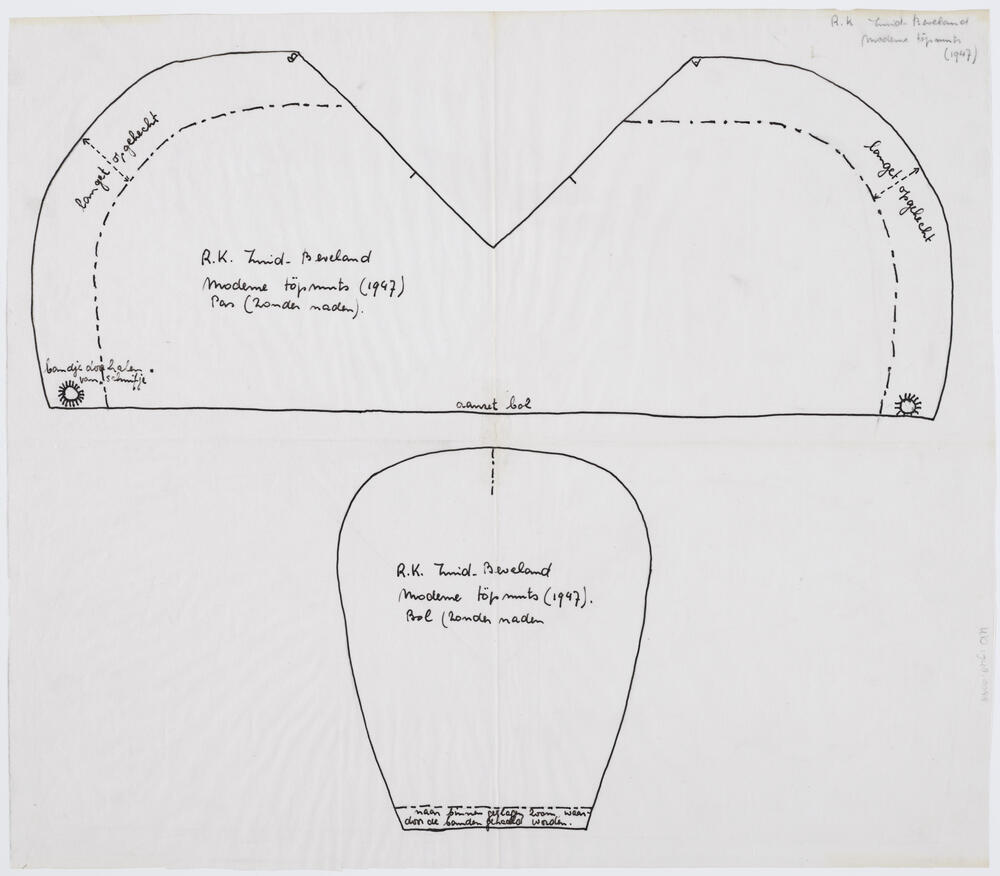 R.K. Zuid-Beveland
moderne töpmuts
(1947)
langet opgehecht
langet opgehecht
R.K. Zuid-Beveland
Moderne töpmuts (1947)
Pas (zonder naden).
bandje doorhalen
van schuifje.
aanzet bol
R.K. Zuid-Beveland
Moderne töpmuts (1947).
Bol (zonder naden
naar binnen geslagen zoom, waar-
door de banden gehaald worden.